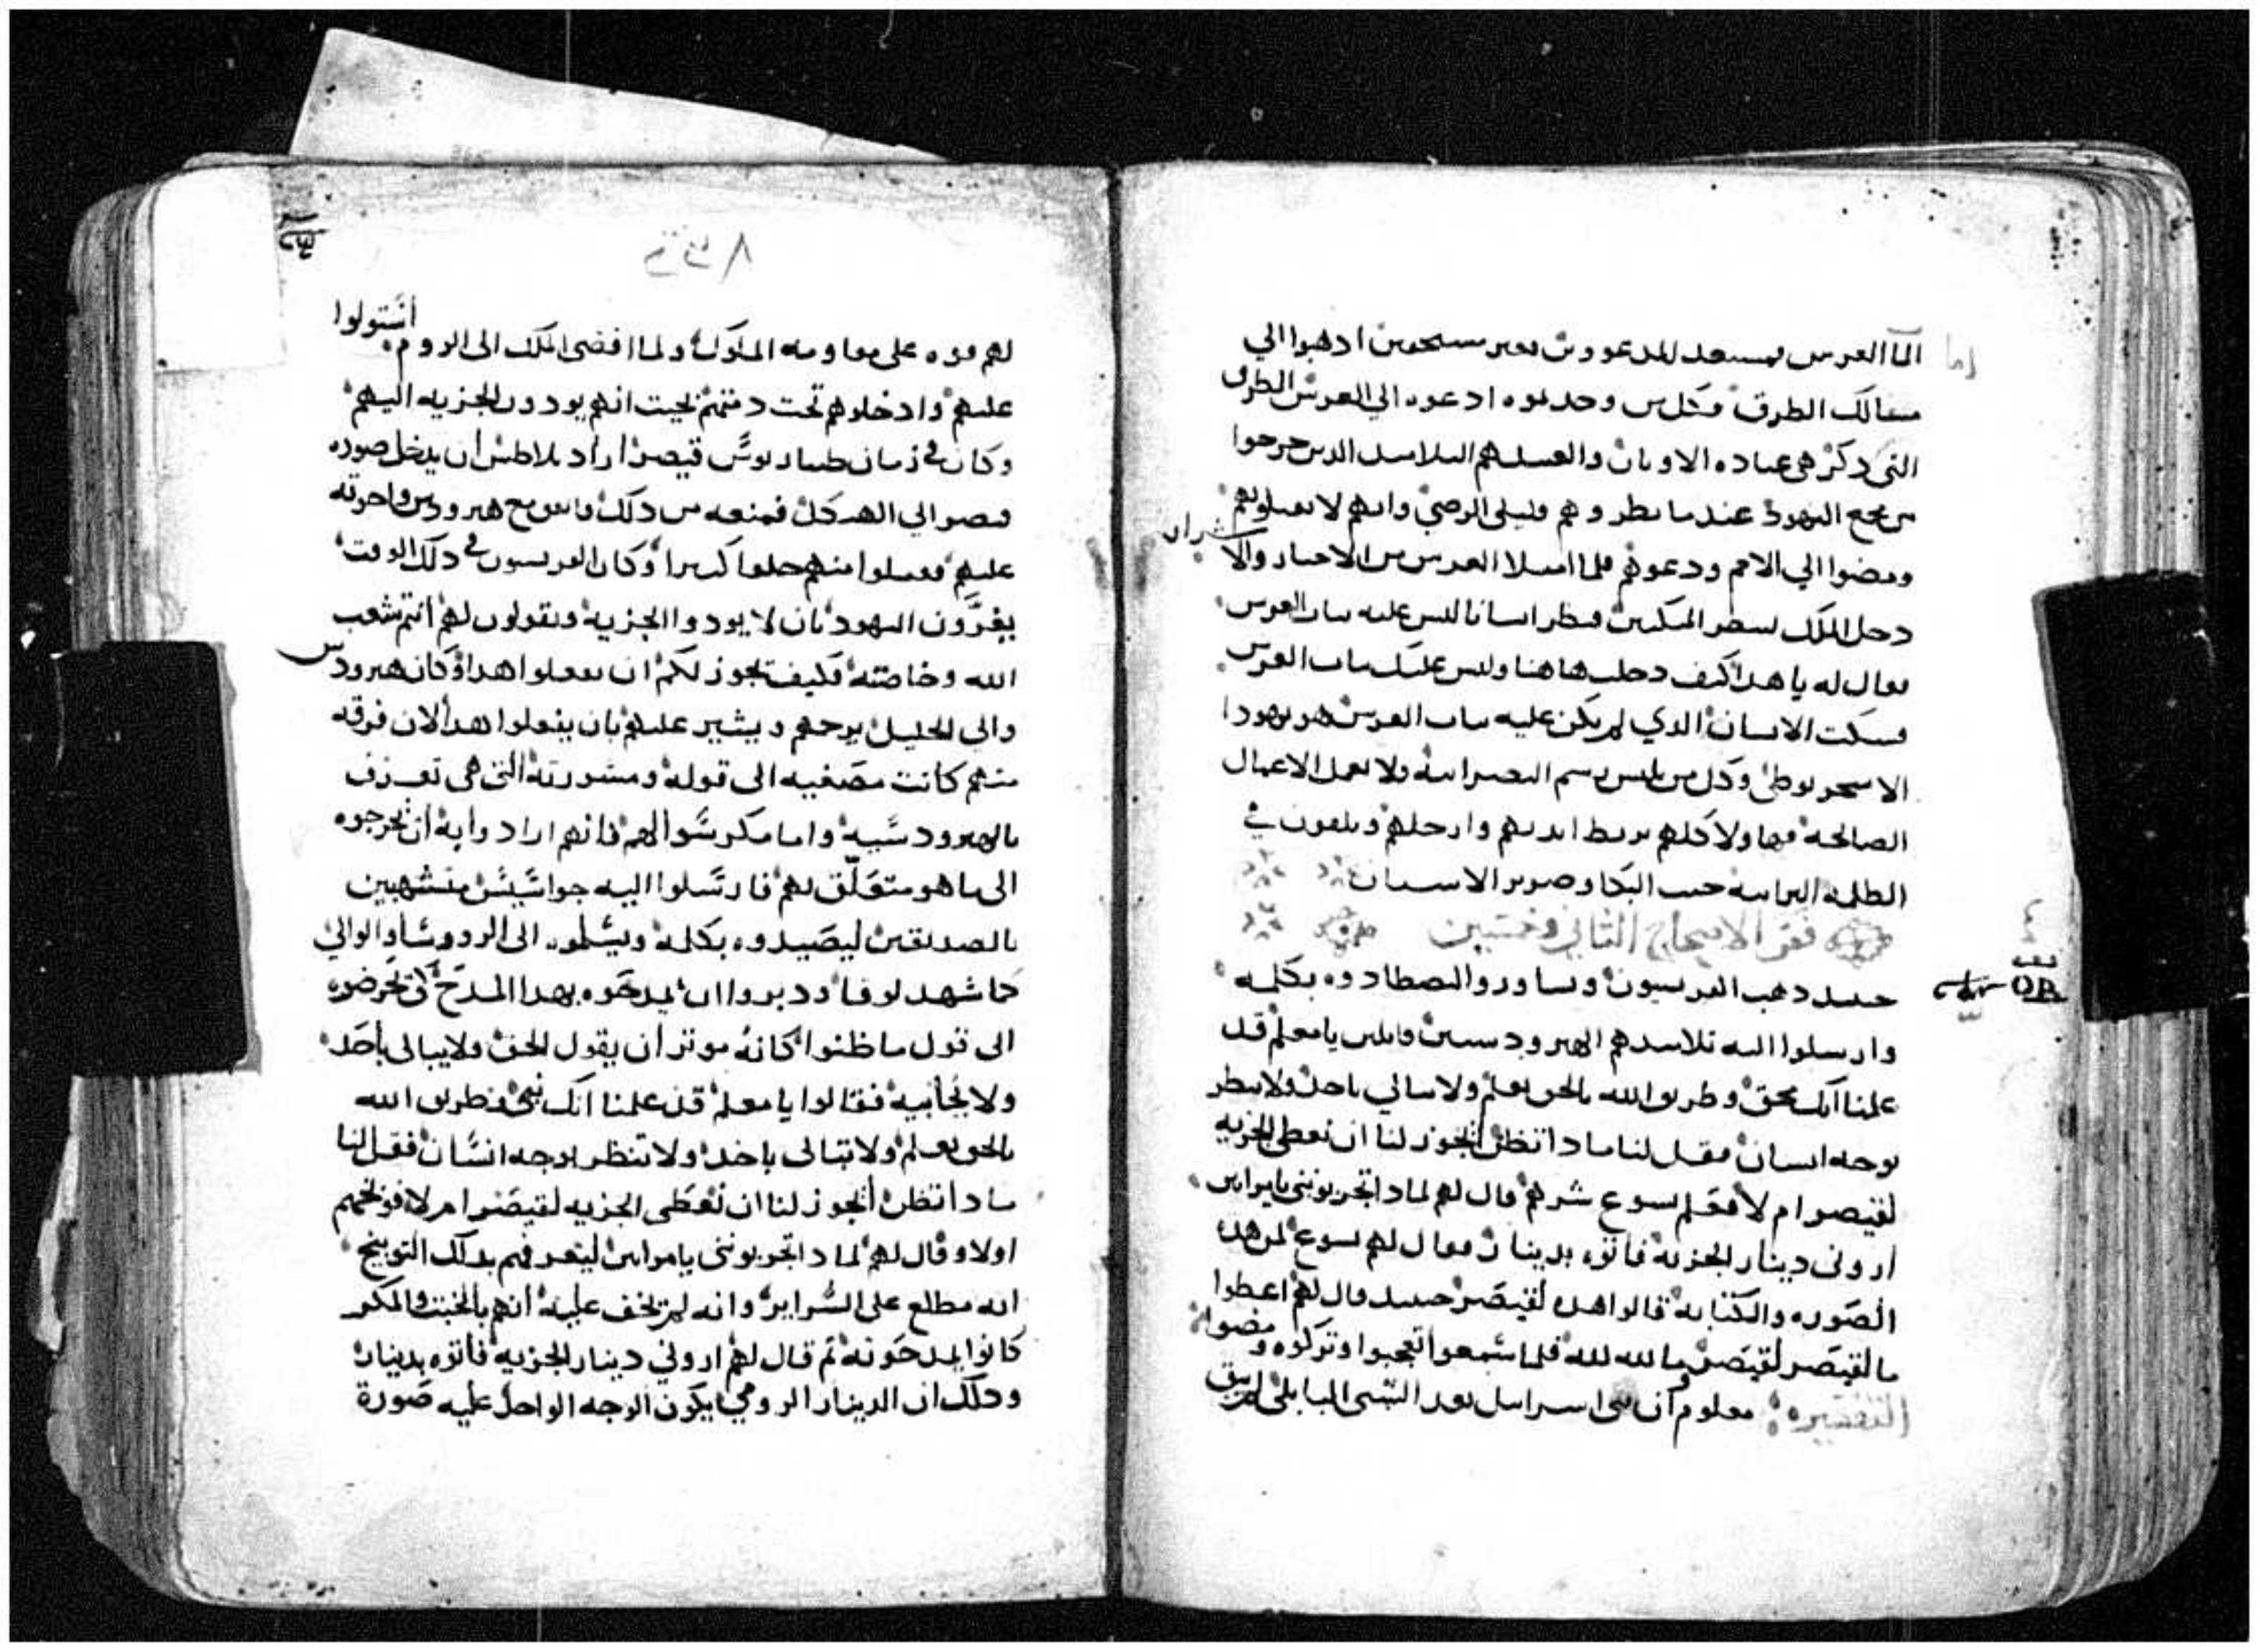 اما العرس فمستعد والمدعوون بغير مستحقين ادهبوا الي
مسالك الطرق فكل من وجدتموه ادعوه الي العرس الطرق
التي دكر هي عباده الاوتان والعبيد هم التلاميد الدين خرجوا
من مجمع اليهود عندما نظروهم وانهم لا يقبلونهم
ومضوا الي الامم ودعوهم فلما امتلا العرس من الاخيار والاشرار
دخل الملك لينظر المتكيين فنظر انسانا ليس عليه تياب العرس
فقال له يا هدا كيف دخلت هاهنا وليس عليك تياب العرس
فسكت الانسان الدي لم يكن عليه تياب العرس هو يهودا
الاسخريوطي وكل من يلبس برسم النصرانيه ولا يعمل الاعمال
الصالحه فهاولا كلهم يربط ايديهم وارجلهم ويلقون في
الظلمه البرانيه حيت البكا وصرير الاسنان
فقر الاصحاح التاني وخمسين
حينيد دهب الفريسيون وتشاوروا ليصطادوه بكلمه
وارسلوا اليه تلاميدهم الهيرودسيين قايلين يا معلم قد
علمنا انك محق وطريق الله بالحق تعلم ولا تبالي باحد ولا تنظر
لوجه انسان فقل لنا مادا تظن ايجوز لنا ان نعطي الجزيه
لقيصر ام لا فعلم يسوع شرهم قال لهم لمادا تجربونني يا مراين
اروني دينار الجزيه فاتوه بدينار فقال لهم يسوع لمن هده
الصوره والكتابه قالوا هده لقيصر حينيد قال لهم اعطوا
ما لقيصر لقيصر وما لله لله فلما سمعوا تعجبوا وتركوه ومضوا
التفسير معلوم ان بني اسراييل بعد السبي البابلي لم يبق
٢٣٨
لهم قوه على مقاومه الملوك ولما افضى الملك الى الروم استولوا
عليهم وادخلوهم تحت دمتهم بحيت انهم يودون الجزيه اليهم
وكان في زمان طيباريوس قيصر اراد بلاطس ان يدخل صوره
قيصر الي الهيكل فمنعه من دلك واتفق مع هيرودس واخوته
عليهم فقتلوا منهم خلقا كتيرا وكان الفريسيون في دلك الوقت
يغرون اليهود بان لا يودوا الجزيه ويقولون لهم انتم شعب
الله وخاصته فكيف يجوز لكم ان تفعلوا هدا وكان هيرودس
والي الجليل يرحمهم ويشير عليهم بان يفعلوا هدا لان فرقه
منهم كانت مصغيه الى قوله ومشورته التي هي تعرف
بالهيرودسيه واما مكر سوالهم فانهم ارادوا به ان يخرجوه
الى ما هو متعلق لهم فارسلوا اليه جواسيس متشبهين
بالصديقين ليصيدوه بكلمه ويسلموه الى الروسا والوالي
كما شهد لوقا ودبروا ان يمدحوه بهدا المدح كي يحرضوه
الى قول ما ظنوا كانه موتر ان يقول الحق ولا يبالي باحد
ولا يحابيه فقالوا يا معلم قد علمنا انك محق وطريق الله
بالحق تعلم ولا تبالي باحد ولا تنظر لوجه انسان فقل لنا
مادا تظن ايجوز لنا ان نعطي الجزيه لقيصر ام لا فوبخهم
اولا وقال لهم لمادا تجربونني يا مراين ليعرفهم بدلك التوبيخ
انه مطلع على السراير وانه لم يخف عليه انهم بالخبت والمكر
كانوا يمدحونه تم قال لهم اروني دينار الجزيه فاتوه بدينار
ودلك ان الدينار الرومي يكون الوجه الواحد عليه صورة